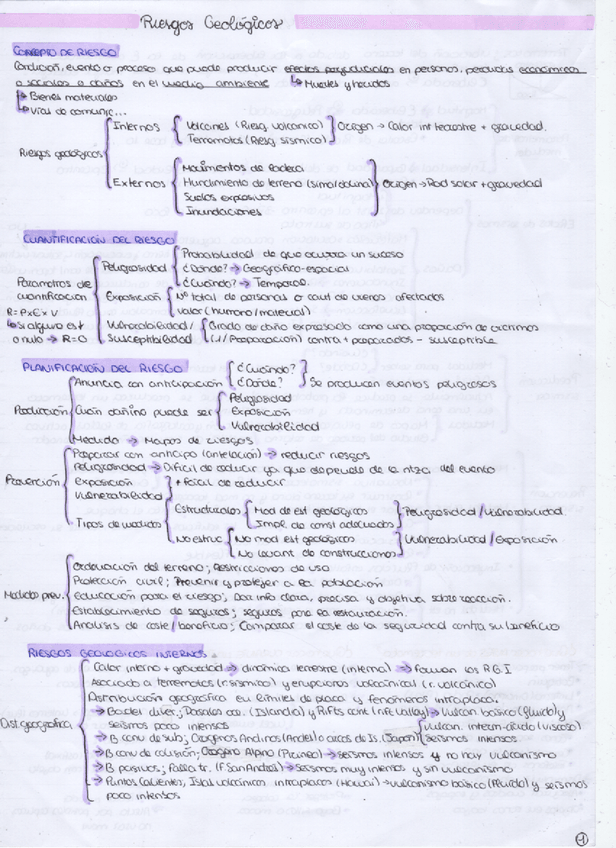 Riesgos Geológicos
CONCEPTO DE RIESGO
Condición, evento o proceso que puede producir efectos perjudiciales en personas, perdidas económicas
o sociales o daños en el medio ambiente ↳ Muertes y heridos
↳ Bienes materiales
↳ Vías de comunic...
Riesgos geológicos
Internos
Volcanes (Riesg. volcanico)
Terremotos (Riesg. sísmico)
Origen → Calor int terrestre + gravedad.
Externos
Movimientos de ladera
Hundimiento de terreno (simas/dolinas)
Suelos expansivos
Inundaciones
Origen → Rad solar + gravedad
CUANTIFICACIÓN DEL RIESGO
Parametros de cuantificacion
R = P x E x V
↳ Si alguno es t
o nulo → R = 0
Peligrosidad
Probabilidad de que ocurra un suceso
¿Dónde? → Geográfico-espacial
¿Cuándo? → Temporal.
Exposición
Nº total de personas o cant de bienes afectados
Valor (humano/material)
Vulnerabilidad /
Susceptibilidad
Grado de daño expresado como una proporción de
(1/Preparación) contra + preparados - susceptible
PLANIFICACIÓN DEL RIESGO
Predicción
Anuncia con anticipación
¿Cuándo?
¿Dónde?
Se producen eventos peligrosos
Cuan dañino puede ser
Peligrosidad
Exposición
Vulnerabilidad
Medida → Mapas de riesgos
Prevención
Preparar con anticipo (antelación) → reducir riesgos
Peligrosidad → Difícil de reducir ya que depende de la ntza. del evento
Exposición
Vulnerabilidad
+ fácil de reducir
Tipos de medidas
Estructurales
Mod de est geológicas
Impl. de const adecuadas
Peligrosidad / Vulnerabilidad
No estruc
No mod est geológicas
No levant de construcciones
Vulnerabilidad / Exposición
Medidas prev.
Ordenación del terreno; Restricciones de uso
Protección civil; Prevenir y proteger a la población
Educación para el riesgo; Dar info clara, precisa y objetiva sobre reacción.
Establecimiento de seguros; seguros para la restauración.
Análisis de coste/beneficio; Comparar el coste de la seguridad contra su beneficio
RIESGOS GEOLOGICOS INTERNOS
Dist geografica
Calor interno + gravedad → dinámica terrestre (interna) → forman los R.G.I
Asociado a terremotos (r. sismico) y erupciones volcánicas (r. volcánico)
Distribución geográfica en límites de placa y fenómenos intraplaca.
→ Bordes diver.; Dorsales oce. (Islandia) y Rifts cont (rift valley) → Vulcan básico (fluido) y
seísmos poco intensos
→ B conv de sub; Orógenos Andinos (Andes) o arcos de Is. (Japón)
vulcan. interm-ácido (viscoso)
seísmos intensos
→ B conv de colisión; Orógeno Alpino (Pirineo) → seísmos intensos y no hay vulcanismo
→ B pasivos; Falla tr. (F San Andrés) → Seísmos muy intensos y sin vulcanismo
→ Puntos Calientes; Islas volcánicas intraplacas (Hawai) → vulcanismo básico (fluido) y seísmos
poco intensos
1